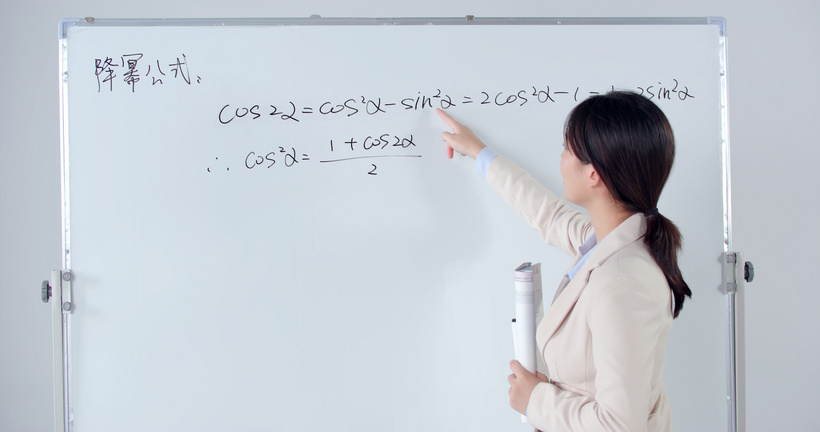 降幂公式:
cos2α=cos²α-sin²α=2cos²α-1= 2sin²α
∴ cos²α= (1+cos2α)/2